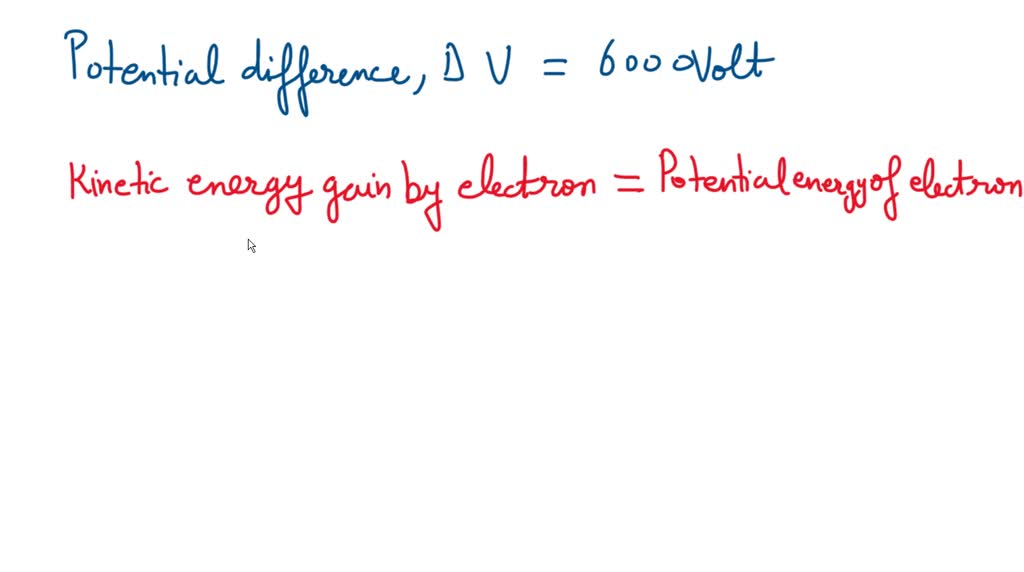 Potential difference, Δ V = 6000Volt
Kinetic energy gain by electron = Potential energy of electron